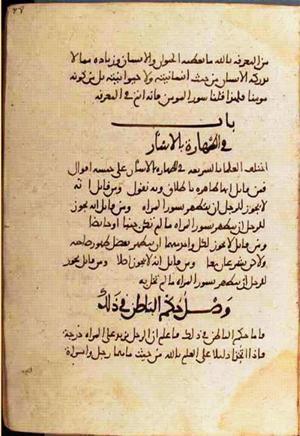 من المعرفة بالله ما يعطيه الحيوان والانسان وزياده مما لا
يدركه الانسان من حيث انسانيته ولا حيوانيته بل من كونه
مومنا فلهذا قلنا سور المومن فانه اتم في المعرفه
باب
في الطهارة بالاسار
اختلف العلما بالشريعه في الطهارة بالاسار على خمسه اقوال
فمن قايل انها طاهره باطلاق وبه نقول ومن قايل انه
لا يجوز للرجل ان يتطهر بسور المراه ومن قايل انه يجوز
للرجل ان يتطهر بسور المراه ما لم تكن جنبا او حايضا
ومن قايل لا يجوز لكل واحد منهما ان يتطهر بفضل طهور صاحبه
ولاكن يشرعان معا ومن قايل انه لا يجوز اصلا ومن قايل يجوز
للرجل ان يتطهر بسور المراه ما لم تخل به
وصل حكم الباطن في ذلك
فاما حكم الباطن في ذلك فاعلم ان الرجل يزيد على المراه درجة
فاذا اتخذا دليلا على العلم بالله من حيث ما هما رجل وامراة